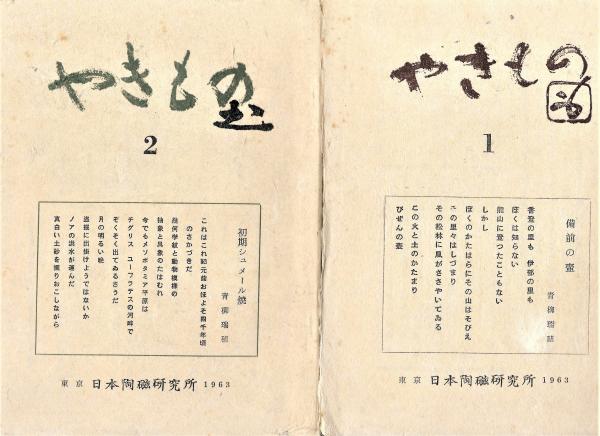 やきもの
2
初期シュメール焼
青柳瑞穂
これはこれ紀元前おほよそ四千年頃
のさかづきだ
幾何学紋と動物模様の
抽象と具象のたはむれ
今でもメソポタミア平原は
チグリス ユーフラテスの河畔で
ぞくぞく出てゐるさうだ
月の明るい晩
盗掘に出掛けようではないか
ノアの洪水が運んだ
真白い土砂を掘りおこしながら
東京 日本陶磁研究所 1963
やきもの
1
備前の壺
青柳瑞穂
香登の里も 伊部の里も
ぼくは知らない
熊山に登つたこともない
しかし
ぼくのかたはらにその山はそびえ
この里々はしづまり
その松林に風がささやいてゐる
この火と土のかたまり
びぜんの壺
東京 日本陶磁研究所 1963